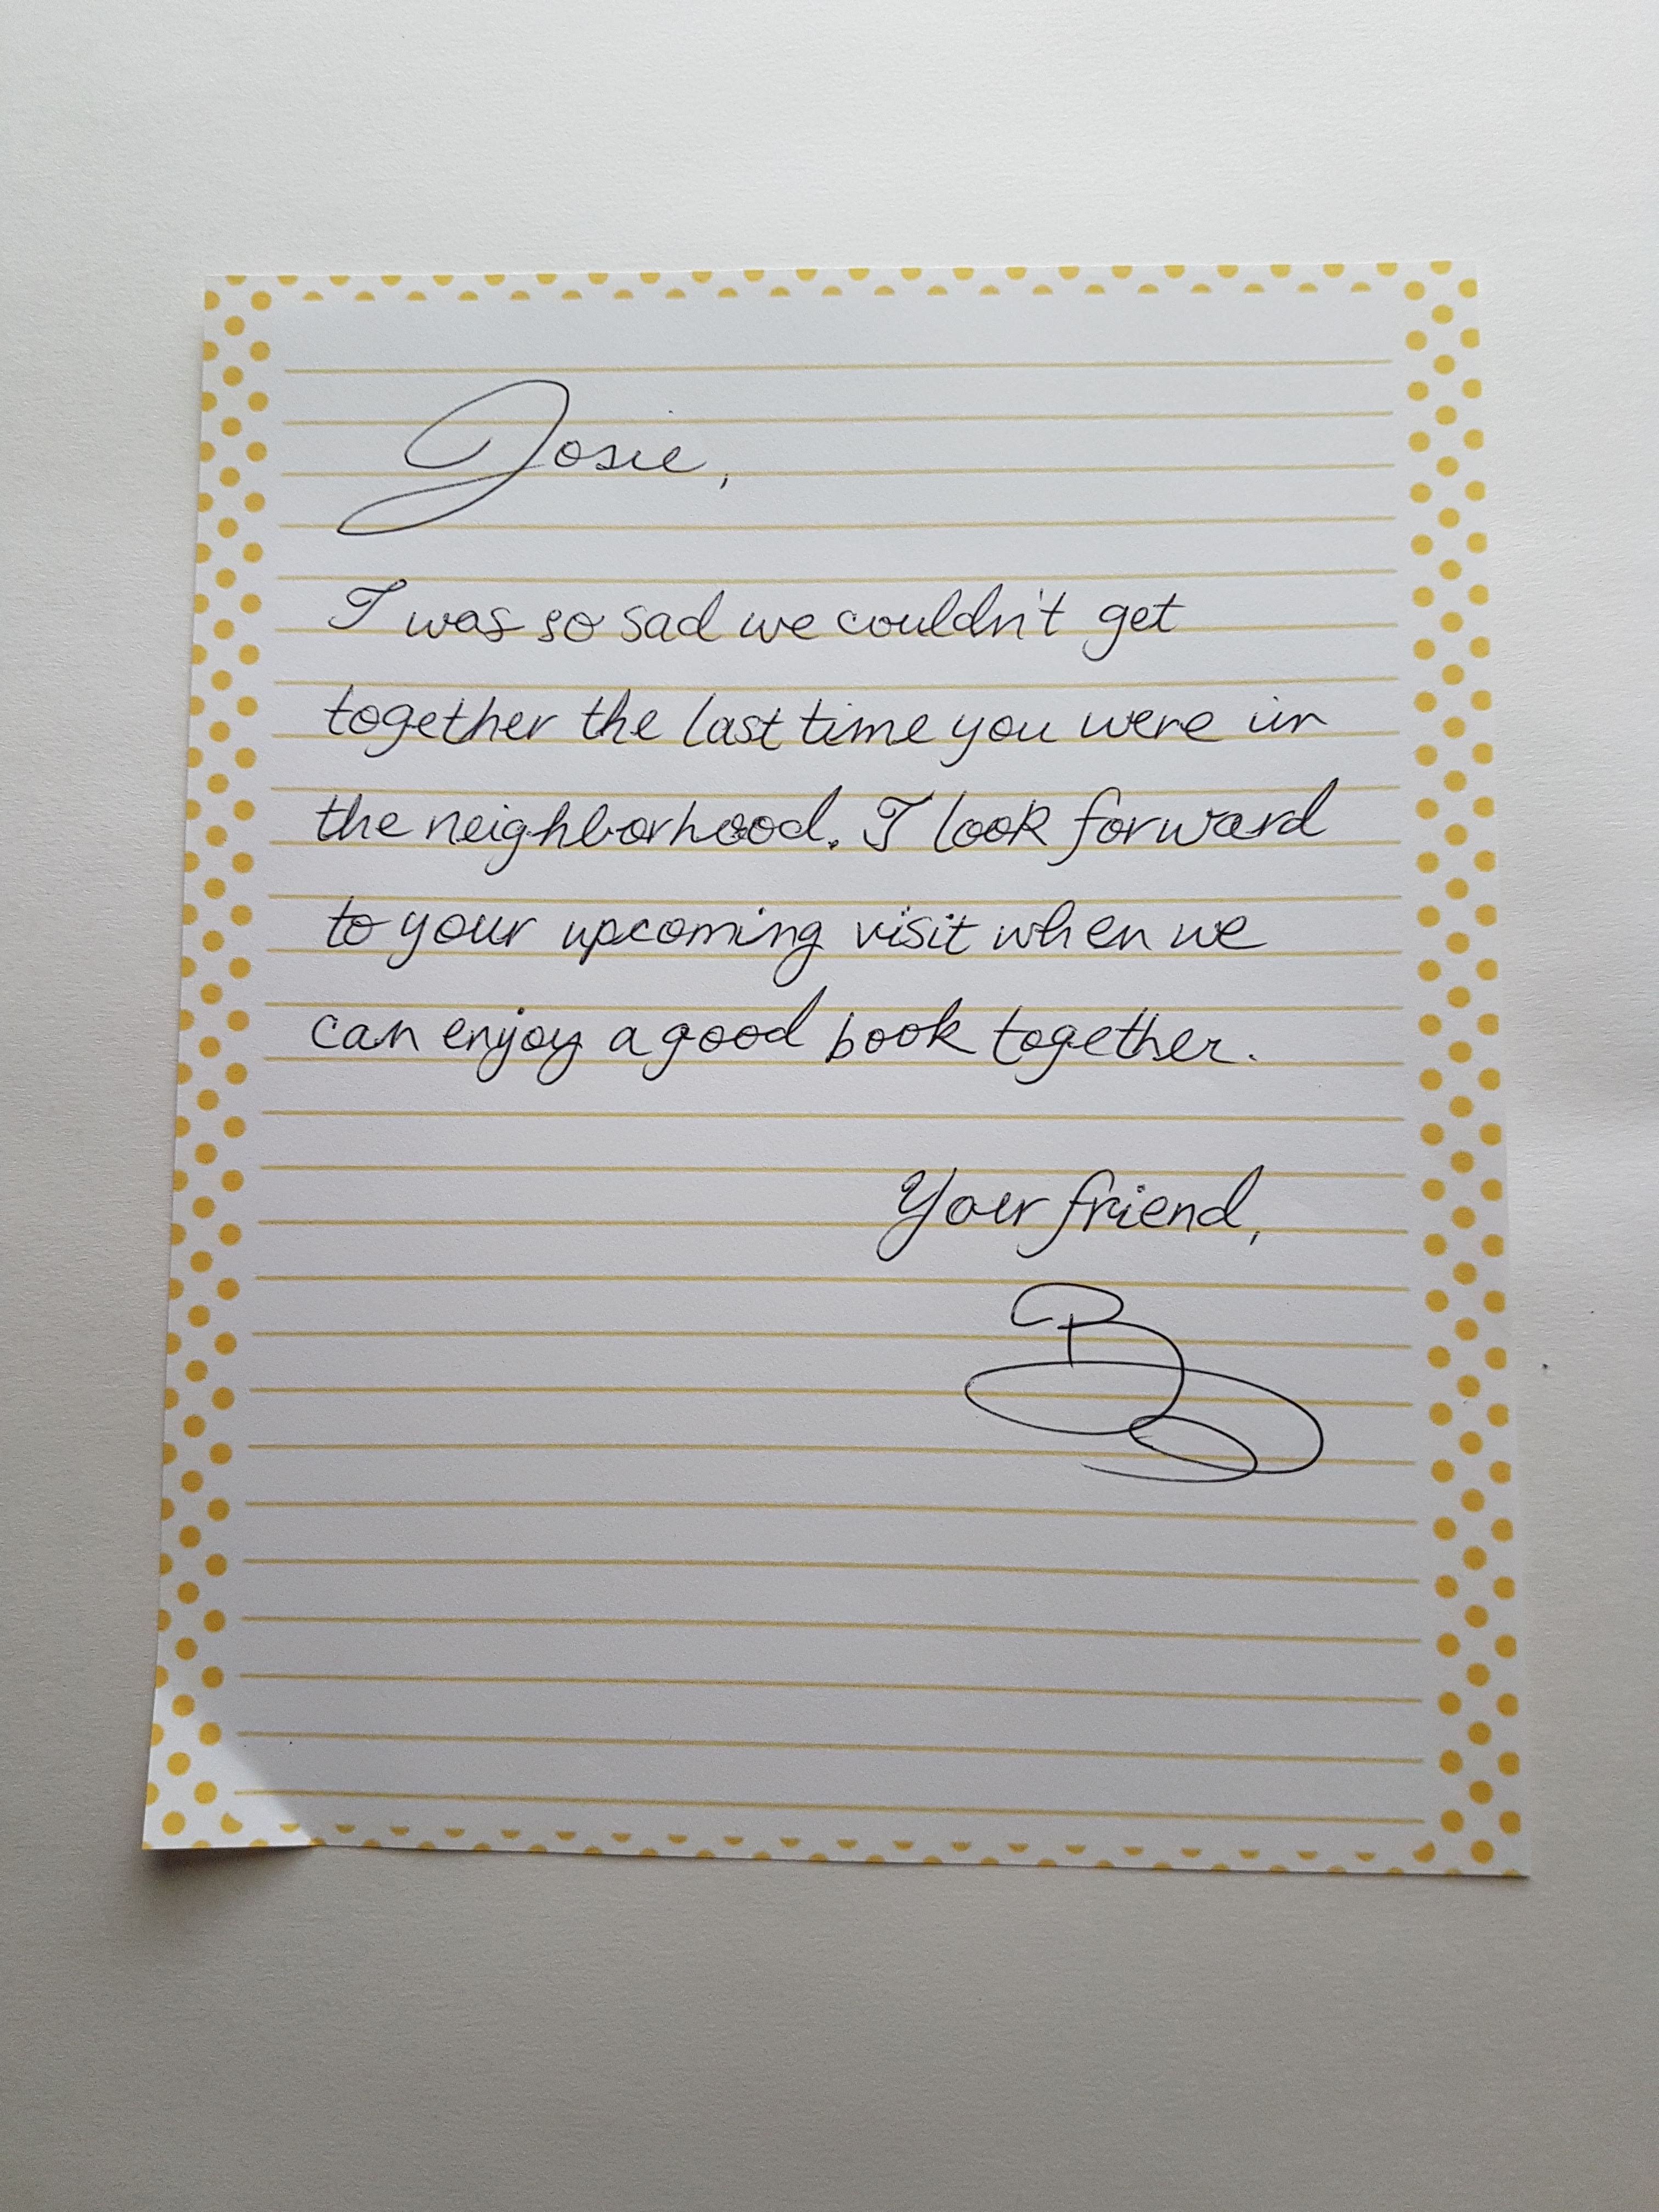 Josie,
I was so sad we couldn't get
together the last time you were in
the neighborhood. I look forward
to your upcoming visit when we
can enjoy a good book together.
Your friend,